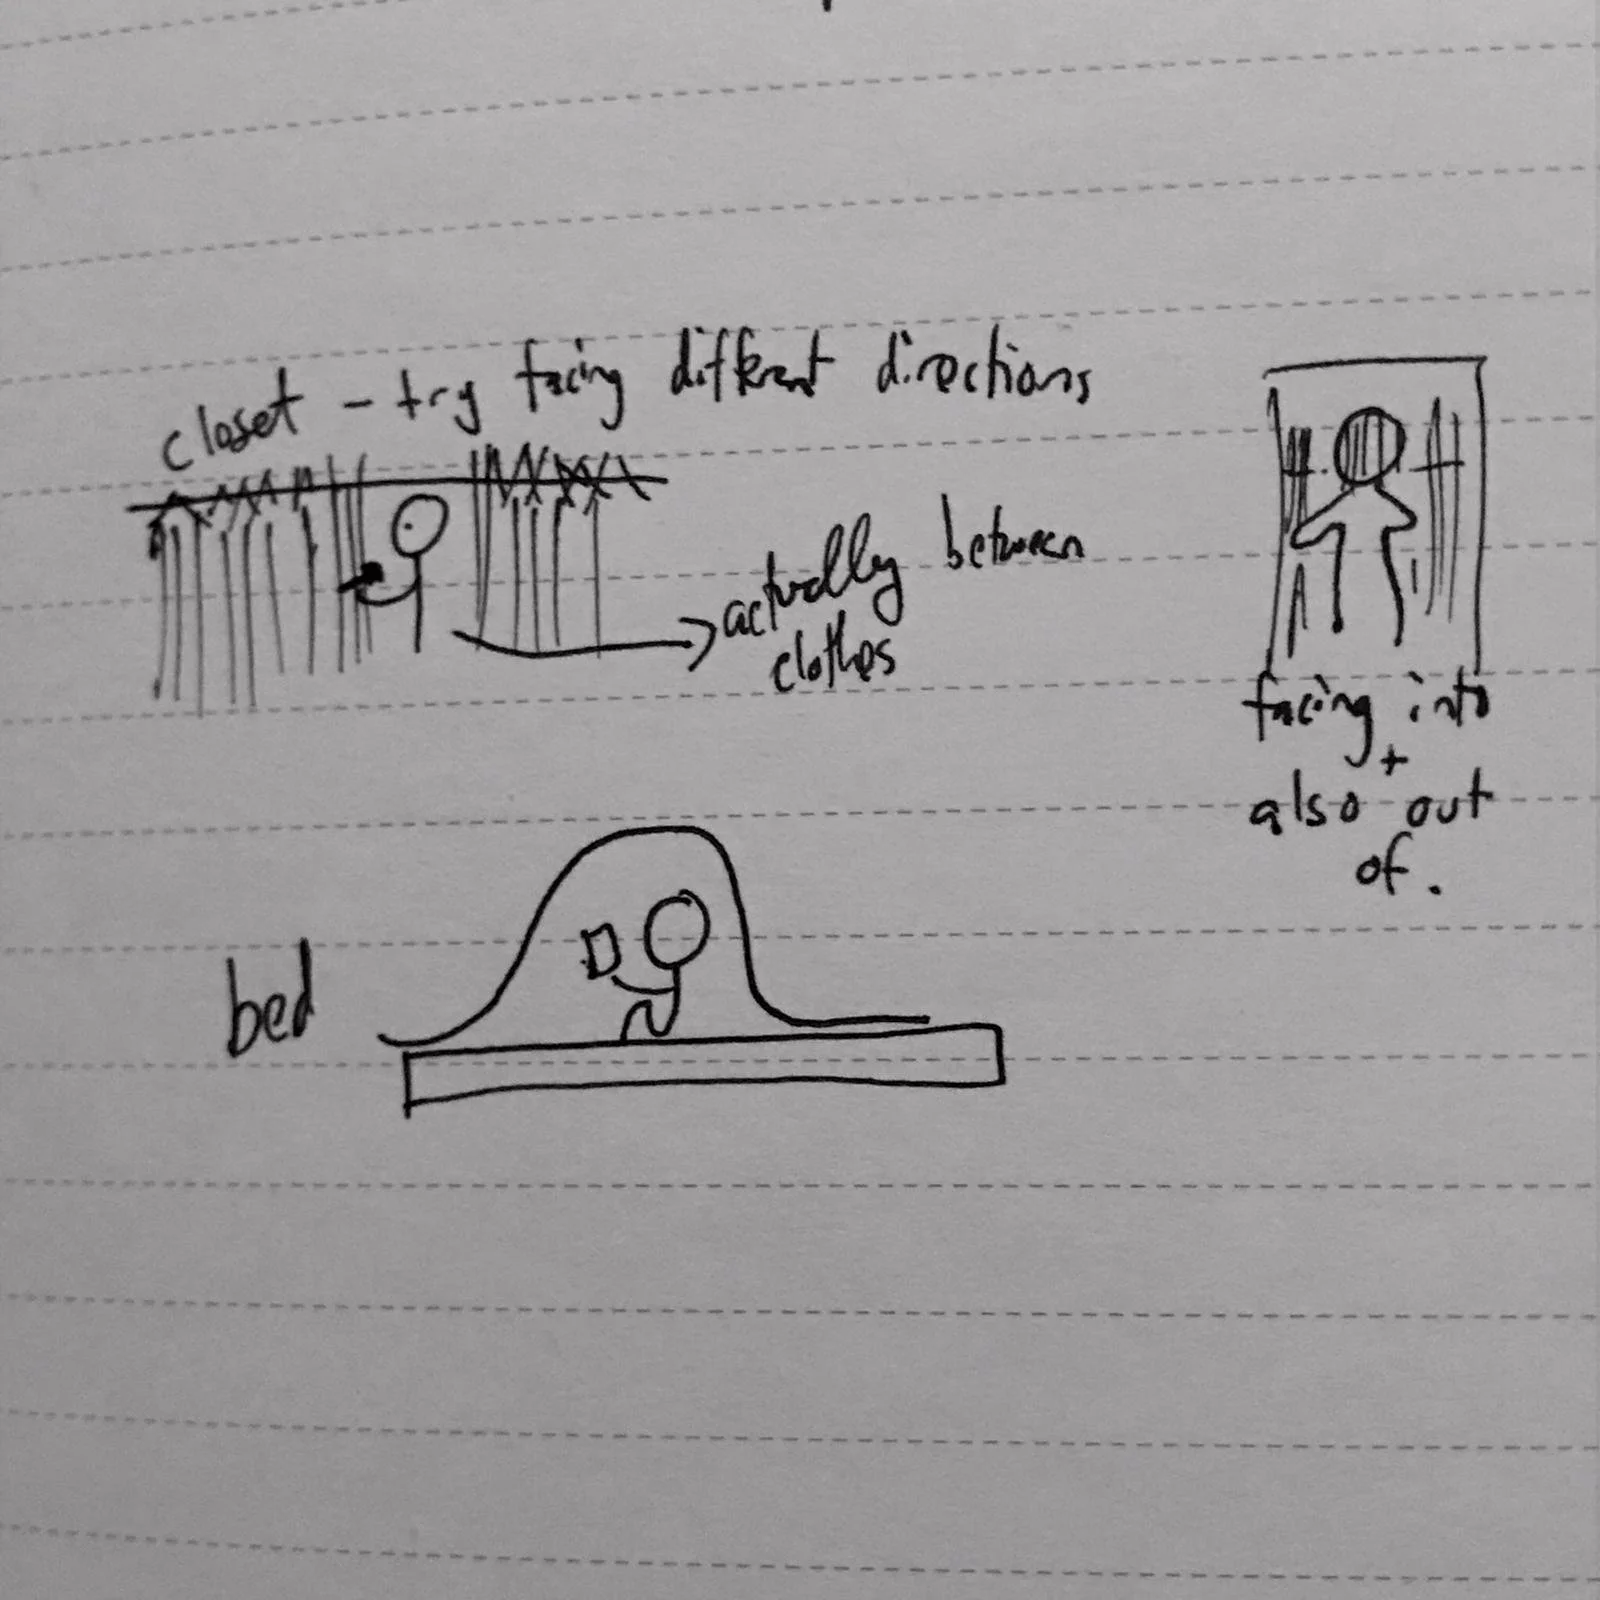 closet - try facing different directions
actually between
clothes
facing into
+
also out
of.
bed